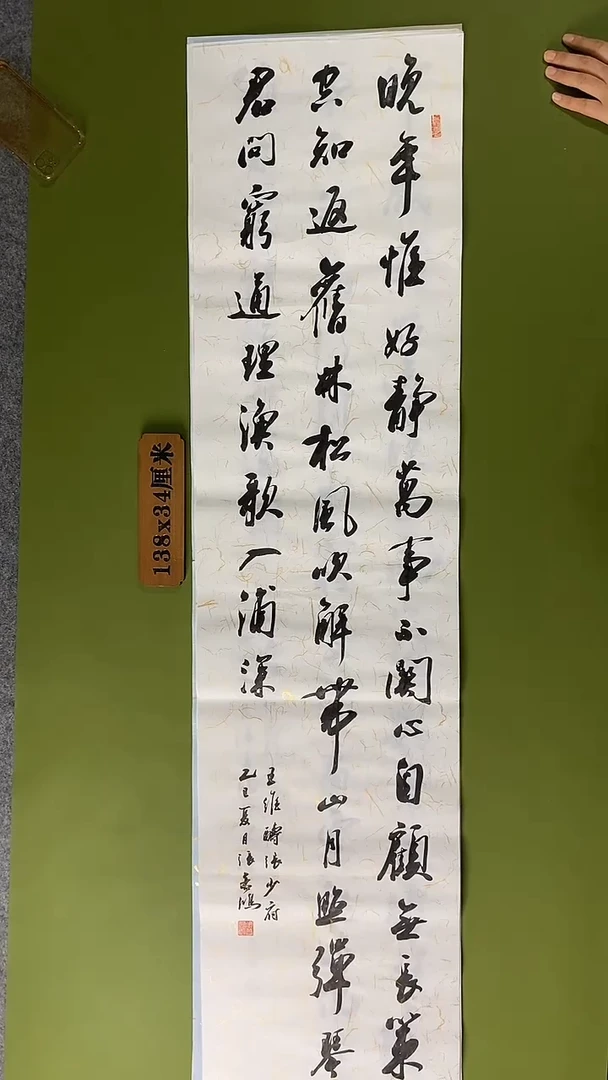 晚年惟好静萬事不關心自顧無長策
空知返舊林松風吹解帶山月照彈琴
君問窮通理漁歌入浦深
王維酬張少府
乙巳夏日張
138x34厘米